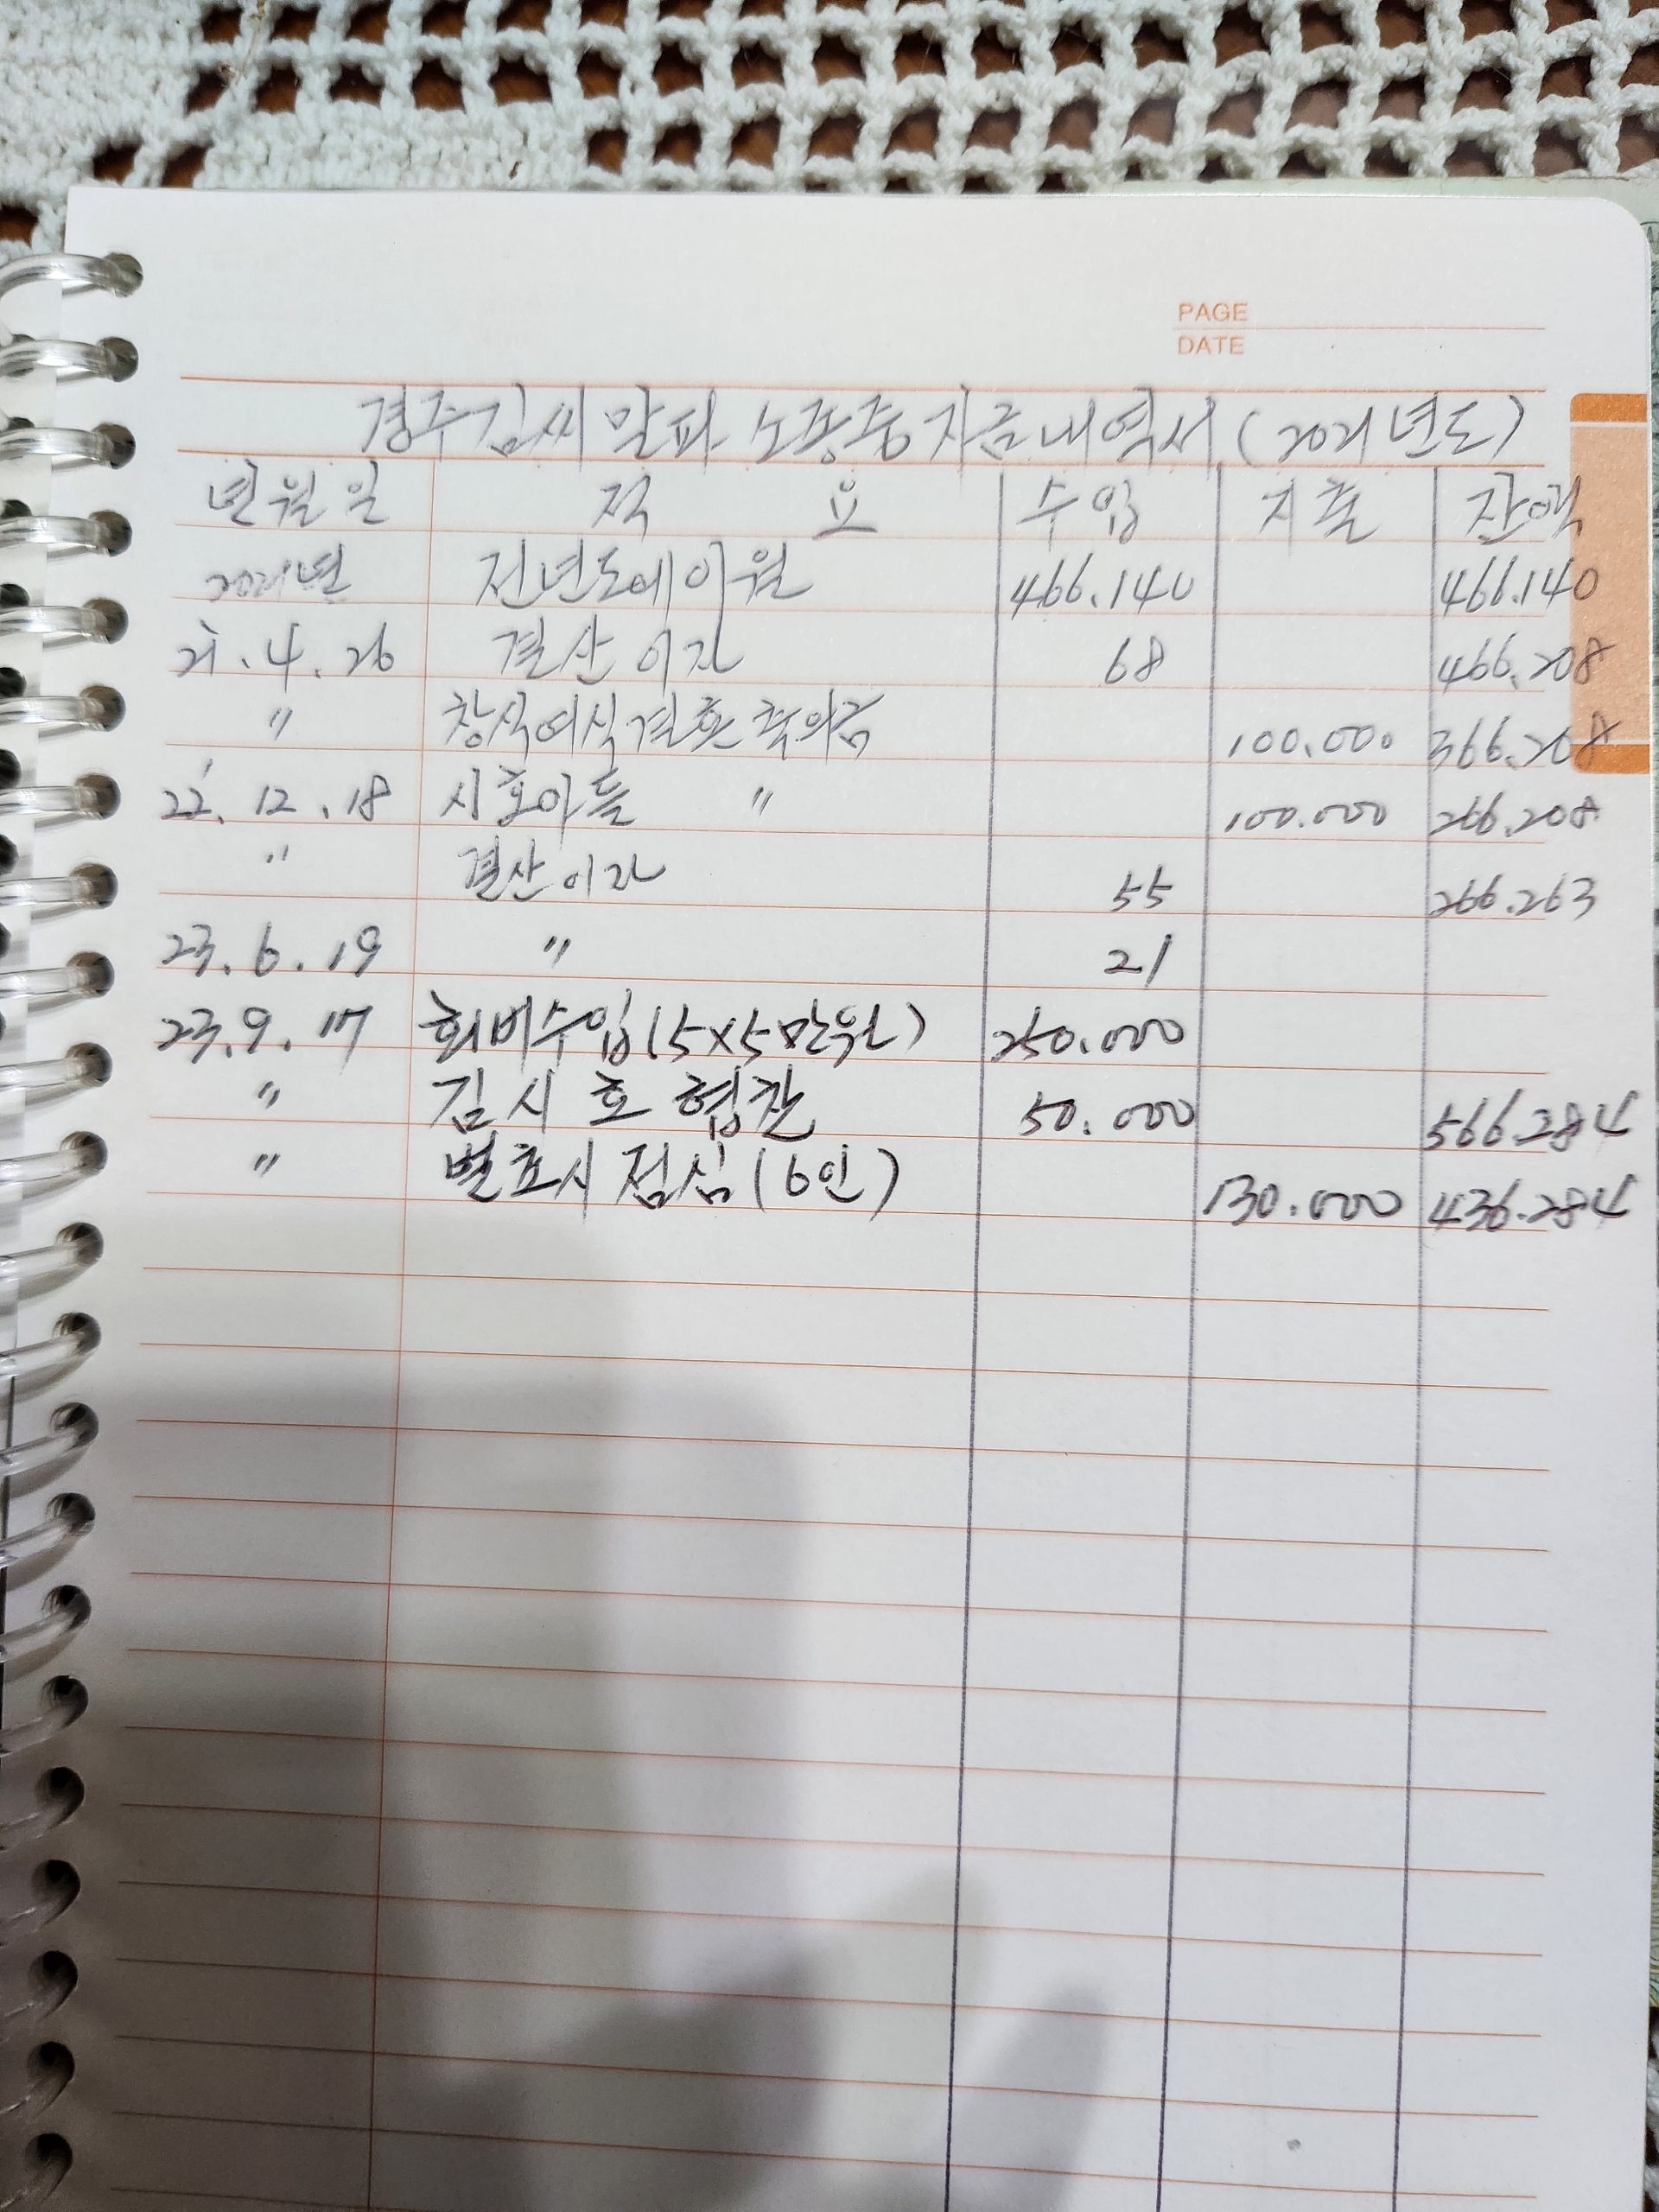 PAGE
DATE
경주김씨 말파 노종중자금내역서 (2021년도)
년월일 적 요 수입 지출 잔액
2021년 전년도에이월 466.140 466.140
21.4.26 결산이자 68 466.208
〃 창식여식결혼축의금 100.000 366.208
22.12.18 시호아들 〃 100.000 266.208
〃 결산이자 55 266.263
23.6.19 〃 21
23.9.17 회비수입(5×5만원) 250.000
〃 김시호협찬 50.000 566.284
〃 벌초시점심(6인) 130.000 436.284